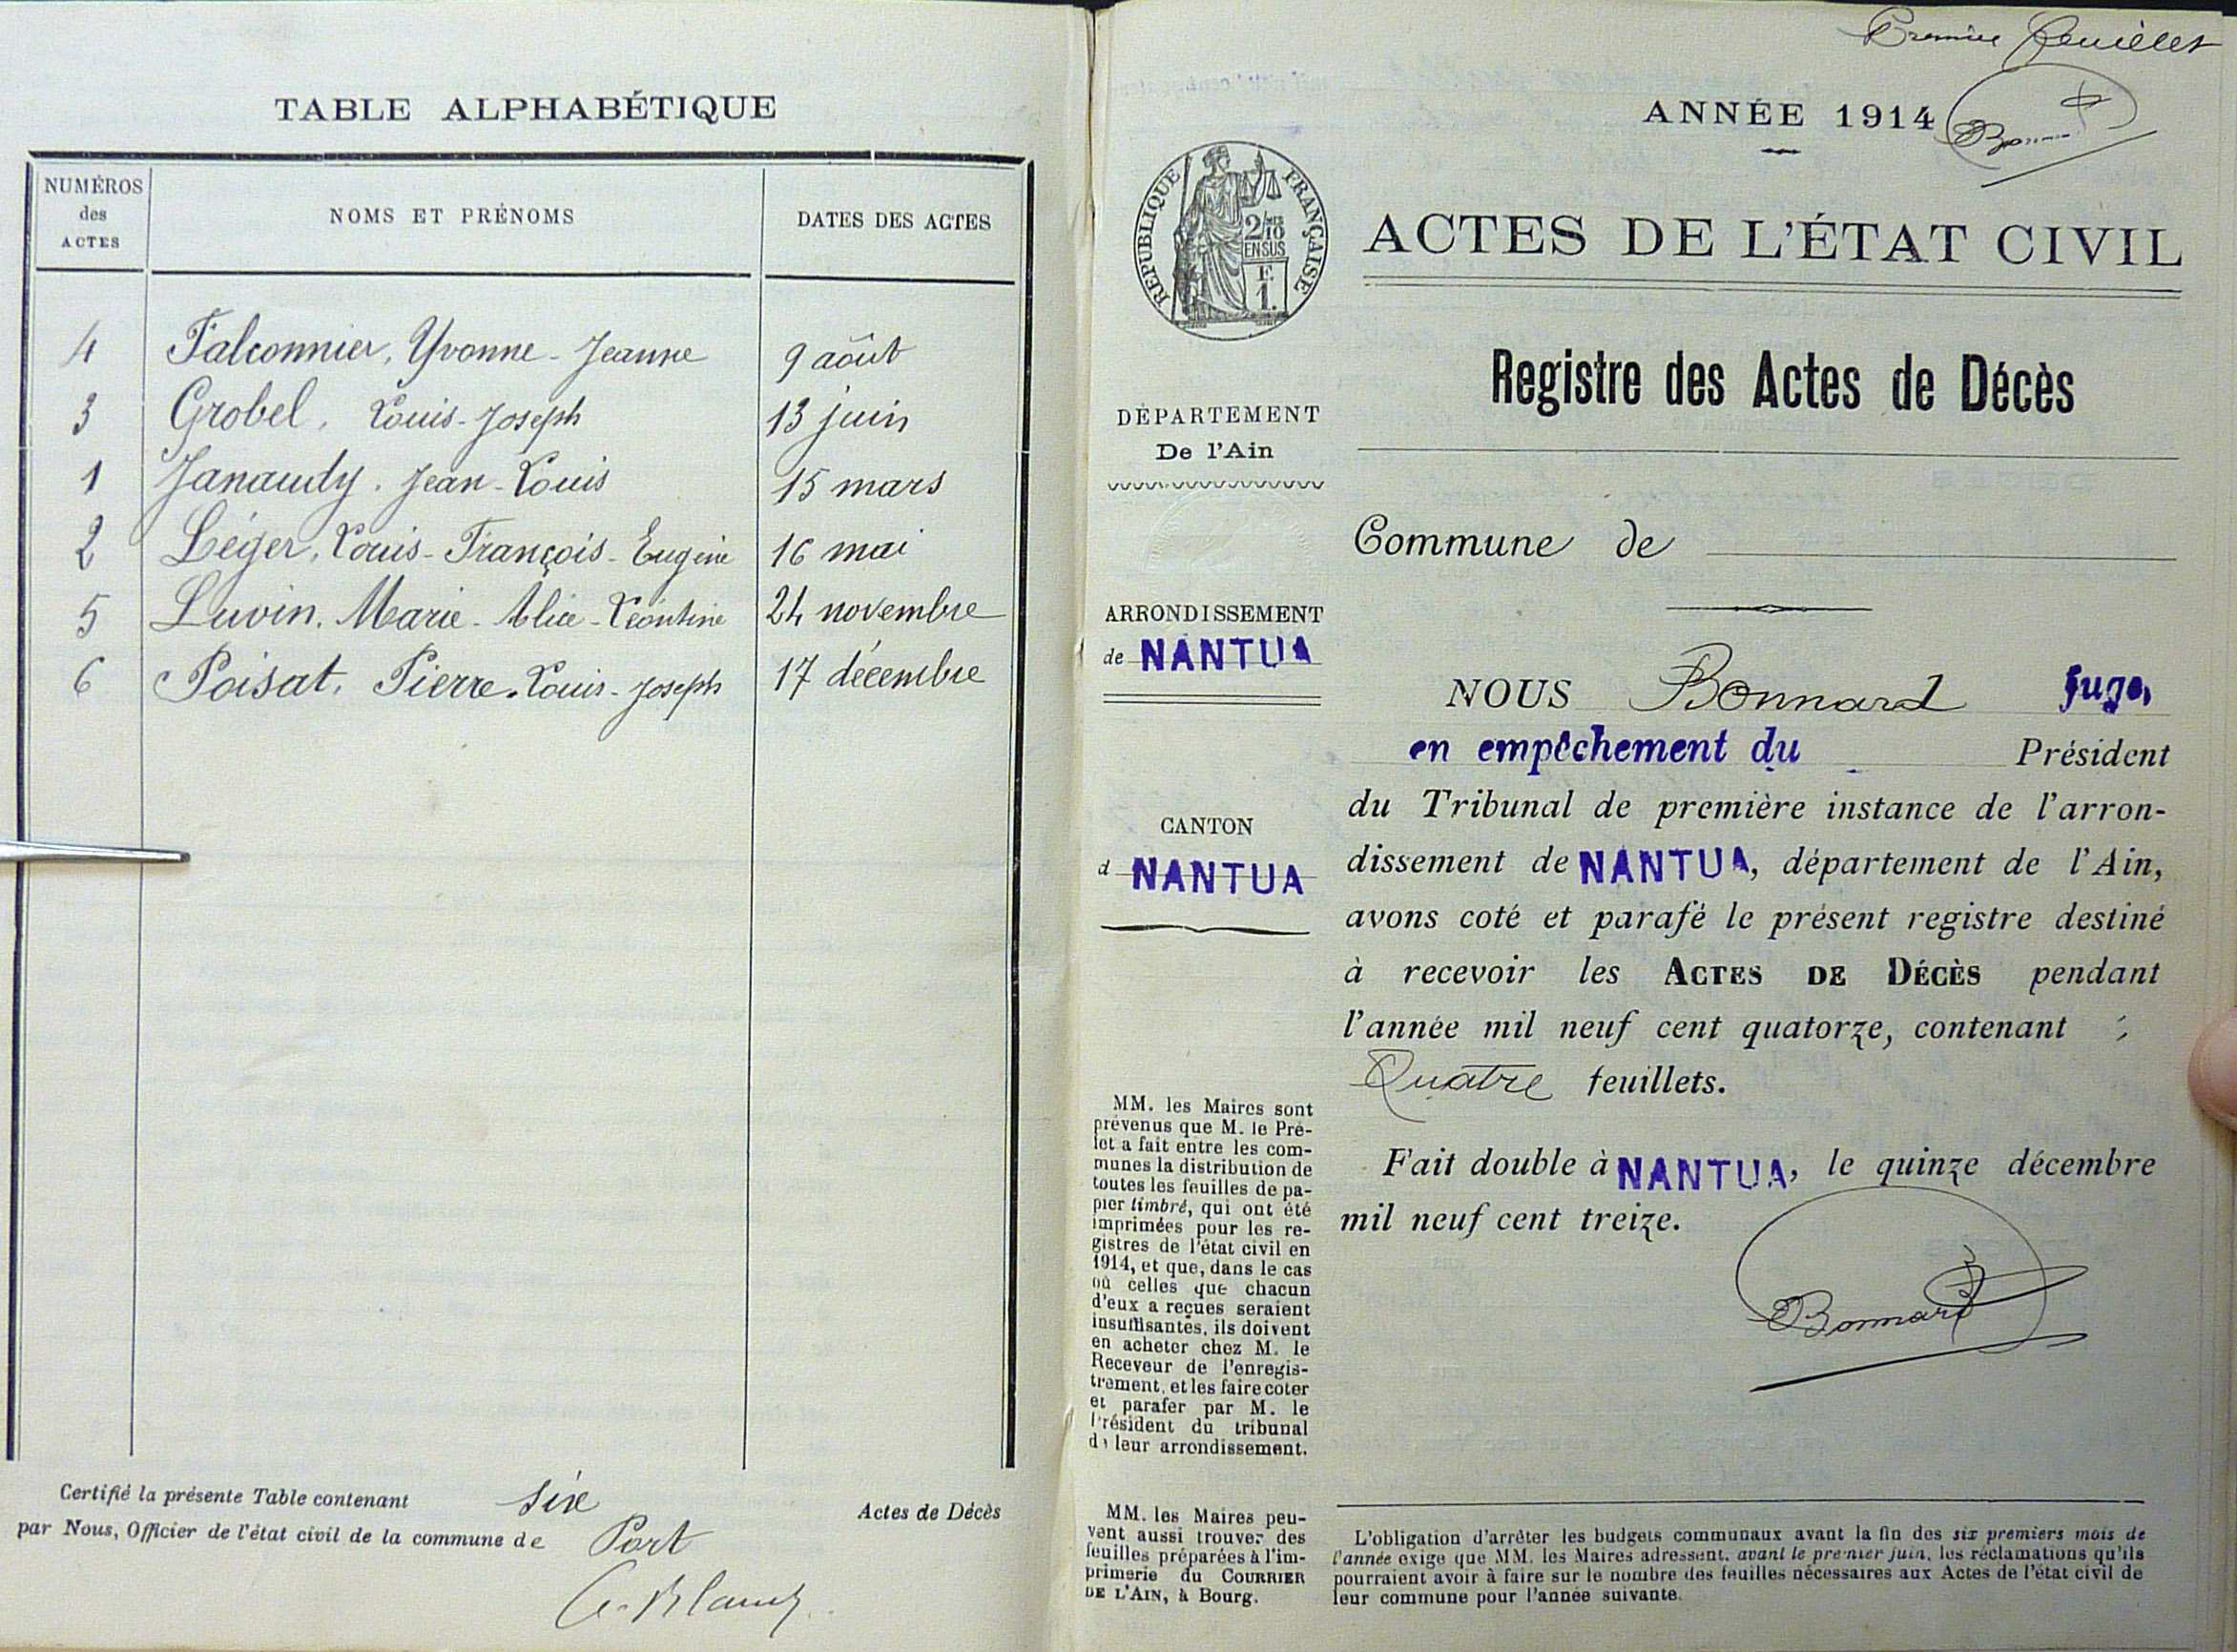 TABLE ALPHABÉTIQUE
NUMÉROS
des
ACTES
NOMS ET PRÉNOMS
DATES DES ACTES
4 Falconnier, Yvonne-Jeanne 9 août
3 Grobel, Louis-Joseph 13 juin
1 Janaudy, Jean-Louis 15 mars
2 Léger, Louis-François-Eugène 16 mai
5 Luvin, Marie-Alice-Léontine 24 novembre
6 Poisat, Pierre-Louis-Joseph 17 décembre
Certifié la présente Table contenant six Actes de Décès
par Nous, Officier de l'état civil de la commune de Port
Premier feuillet
ANNÉE 1914
RÉPUBLIQUE FRANÇAISE
2/10
EN SUS
F.
1.
ACTES DE L'ÉTAT CIVIL
Registre des Actes de Décès
DÉPARTEMENT
De l'Ain
Commune de
ARRONDISSEMENT
de NANTUA
CANTON
d NANTUA
NOUS Bonnard Juge,
en empêchement du Président
du Tribunal de première instance de l'arron-
dissement de NANTUA, département de l'Ain,
avons coté et parafé le présent registre destiné
à recevoir les ACTES DE DÉCÈS pendant
l'année mil neuf cent quatorze, contenant
Quatre feuillets.
Fait double à NANTUA, le quinze décembre
mil neuf cent treize.
Bonnard
MM. les Maires sont
prévenus que M. le Pré-
fet a fait entre les com-
munes la distribution de
toutes les feuilles de pa-
pier timbré, qui ont été
imprimées pour les re-
gistres de l'état civil en
1914, et que, dans le cas
où celles que chacun
d'eux a reçues seraient
insuffisantes, ils doivent
en acheter chez M. le
Receveur de l'enregis-
trement, et les faire coter
et parafer par M. le
Président du tribunal
de leur arrondissement.
MM. les Maires peu-
vent aussi trouver des
feuilles préparées à l'im-
primerie du COURRIER
DE L'AIN, à Bourg.
L'obligation d'arrêter les budgets communaux avant la fin des six premiers mois de
l'année exige que MM. les Maires adressent, avant le premier juin, les réclamations qu'ils
pourraient avoir à faire sur le nombre des feuilles nécessaires aux Actes de l'état civil de
leur commune pour l'année suivante.